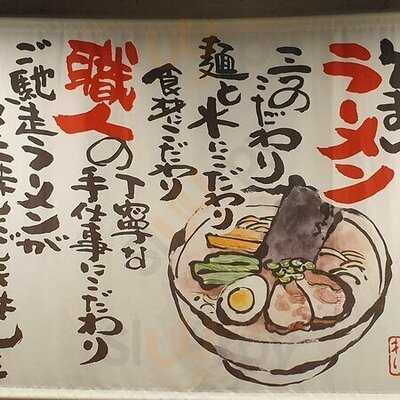 うまい
ラーメン
三つの
こだわり
麺と水にこだわり
食材にこだわり
職人の
丁寧な
手仕事にこだわり
ご馳走ラーメンが